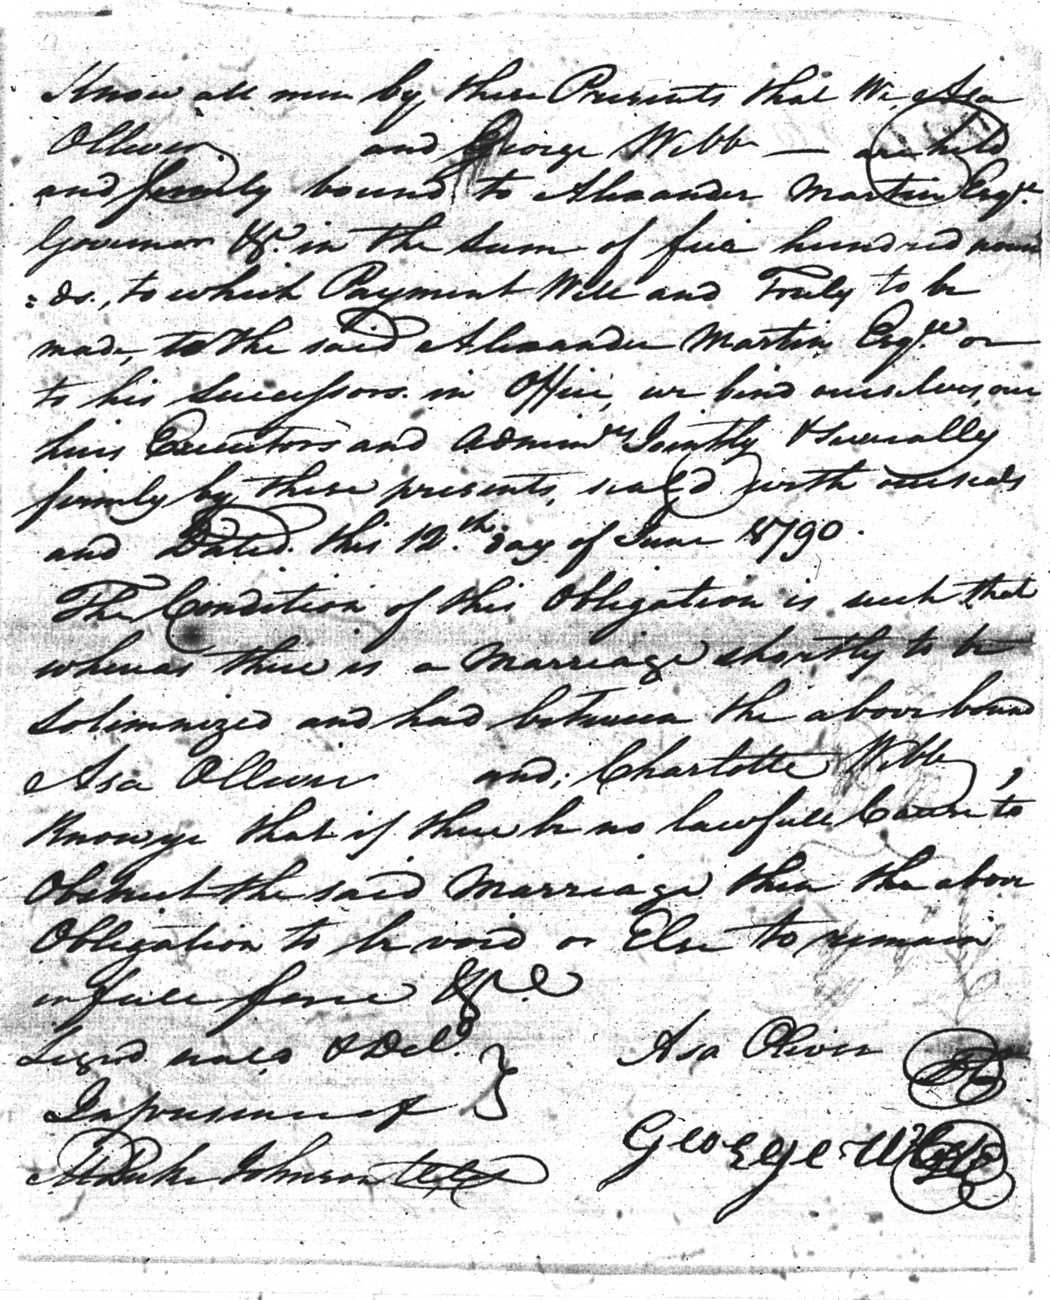 Know all men by these Presents that We Asa
Olliver and George Webb — are held
and firmly bound to Alexander Martin Esqr.
Governor &c. in the sum of five hundred poun
=ds., to which Payment Well and Truly to be
made, to the said Alexander Martin Esqre or
to his Successors in Office, we bind ourselves, our
heirs Executors and Adminrs Jointly & severally
firmly by these presents, sealed with our seals
and Dated this 12th. day of June 1790.
The Condition of this Obligation is such that
whereas there is a Marriage shortly to be
Solimnized and had between the above bound
Asa Olliver and, Charlotte Webb,
Know ye that if there be no lawfull Cause to
Obstruct the said Marriage then the above
Obligation to be void or Else to remain
in full force &c
Signd seald & Deld.
In presence of
Asa Oliver
George Webb
A Duke Johnson